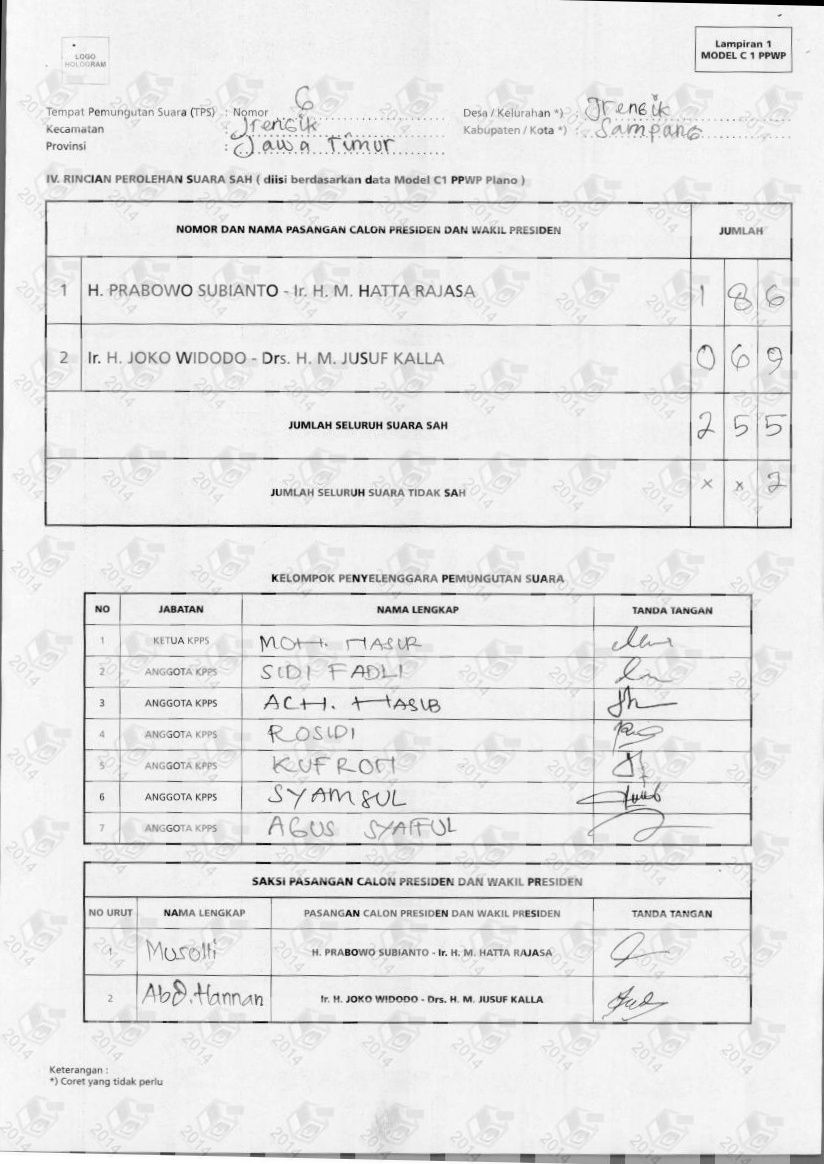 Lampiran 1
MODEL C 1 PPWP
LOGO
HOLOGRAM
Tempat Pemungutan Suara (TPS) : Nomor 6 Desa / Kelurahan *) : Jrengik
Kecamatan : Jrengik Kabupaten / Kota *) : Sampang
Provinsi : Jawa Timur
IV. RINCIAN PEROLEHAN SUARA SAH ( diisi berdasarkan data Model C1 PPWP Plano )
NOMOR DAN NAMA PASANGAN CALON PRESIDEN DAN WAKIL PRESIDEN JUMLAH
1 H. PRABOWO SUBIANTO - Ir. H. M. HATTA RAJASA 1 8 6
2 Ir. H. JOKO WIDODO - Drs. H. M. JUSUF KALLA 0 6 9
JUMLAH SELURUH SUARA SAH 2 5 5
JUMLAH SELURUH SUARA TIDAK SAH x x 2
KELOMPOK PENYELENGGARA PEMUNGUTAN SUARA
NO JABATAN NAMA LENGKAP TANDA TANGAN
1 KETUA KPPS MOH. NASUR
2 ANGGOTA KPPS SIDI FADLI
3 ANGGOTA KPPS ACH. HASIB
4 ANGGOTA KPPS ROSIDI
5 ANGGOTA KPPS KUFRON
6 ANGGOTA KPPS SYAMSUL
7 ANGGOTA KPPS AGUS SYAIFUL
SAKSI PASANGAN CALON PRESIDEN DAN WAKIL PRESIDEN
NO URUT NAMA LENGKAP PASANGAN CALON PRESIDEN DAN WAKIL PRESIDEN TANDA TANGAN
1 Musolli H. PRABOWO SUBIANTO - Ir. H. M. HATTA RAJASA
2 Abd. Hannan Ir. H. JOKO WIDODO - Drs. H. M. JUSUF KALLA
Keterangan :
*) Coret yang tidak perlu